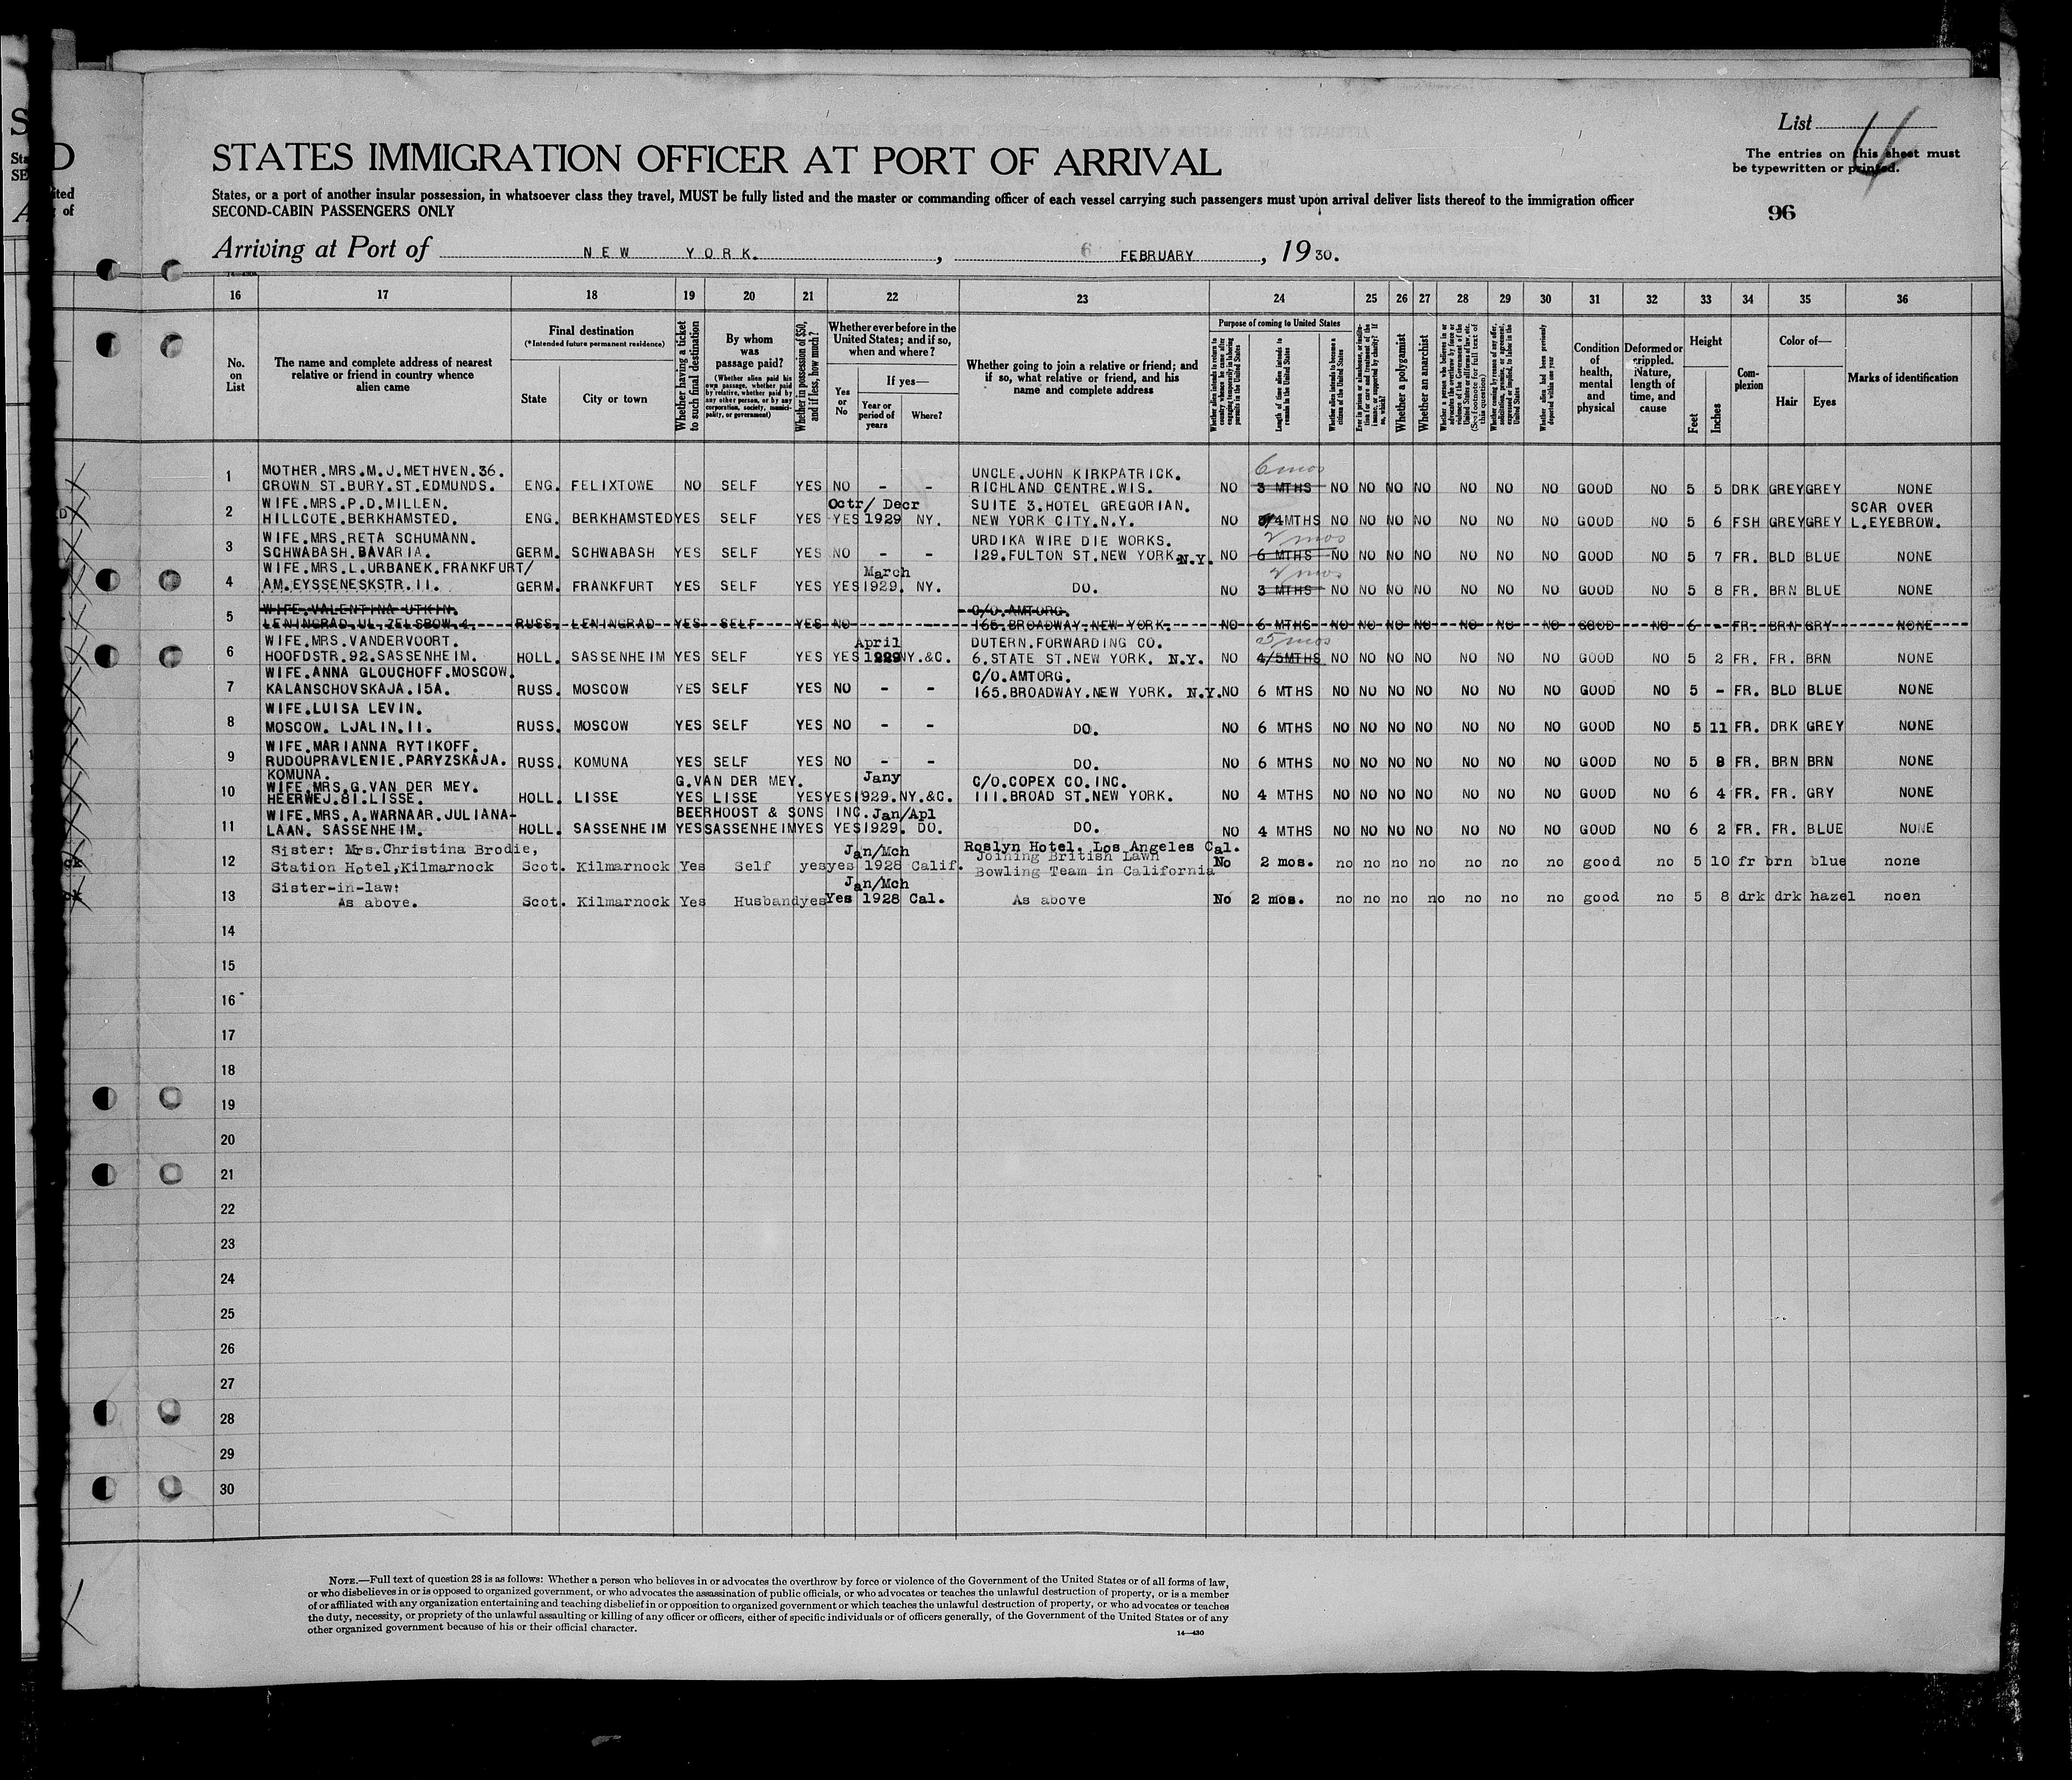 List 4
STATES IMMIGRATION OFFICER AT PORT OF ARRIVAL
The entries on this sheet must
be typewritten or printed.
States, or a port of another insular possession, in whatsoever class they travel, MUST be fully listed and the master or commanding officer of each vessel carrying such passengers must upon arrival deliver lists thereof to the immigration officer
SECOND-CABIN PASSENGERS ONLY
96
Arriving at Port of NEW YORK. , 6 FEBRUARY , 1930.
16 17 18 19 20 21 22 23 24 25 26 27 28 29 30 31 32 33 34 35 36
No. on List
The name and complete address of nearest relative or friend in country whence alien came
Final destination
(*Intended future permanent residence)
State
City or town
Whether having a ticket to such final destination
By whom was passage paid?
(Whether alien paid his own passage, whether paid by relative, whether paid by any other person, or by any corporation, society, municipality, or government)
Whether in possession of $50, and if less, how much?
Whether ever before in the United States; and if so, when and where?
Yes or No
If yes—
Year or period of years
Where?
Whether going to join a relative or friend; and if so, what relative or friend, and his name and complete address
Purpose of coming to United States
Length of time alien intends to remain in the United States
Whether alien intends to become a citizen of the United States
Whether a polygamist
Whether an anarchist
Whether alien had been previously deported within one year
Condition of health, mental and physical
Deformed or crippled. Nature, length of time, and cause
Height
Feet
Inches
Complexion
Color of—
Hair
Eyes
Marks of identification
1 MOTHER.MRS.M.J.METHVEN.36. UNCLE.JOHN KIRKPATRICK. 6 mos
CROWN ST.BURY.ST.EDMUNDS. ENG. FELIXTOWE NO SELF YES NO - - RICHLAND CENTRE.WIS. NO 3 MTHS NO NO NO NO NO NO NO GOOD NO 5 5 DRK GREY GREY NONE
2 WIFE.MRS.P.D.MILLEN. Octr/ Decr SUITE 3.HOTEL GREGORIAN. SCAR OVER
HILLCOTE.BERKHAMSTED. ENG. BERKHAMSTED YES SELF YES YES 1929 NY. NEW YORK CITY.N.Y. NO 3/4MTHS NO NO NO NO NO NO NO GOOD NO 5 6 FSH GREY GREY L.EYEBROW.
3 WIFE.MRS.RETA SCHUMANN. URDIKA WIRE DIE WORKS. 2 mos
SCHWABASH.BAVARIA. GERM. SCHWABASH YES SELF YES NO - - 129.FULTON ST.NEW YORK.N.Y. NO 6 MTHS NO NO NO NO NO NO NO GOOD NO 5 7 FR. BLD BLUE NONE
4 WIFE.MRS.L.URBANEK.FRANKFURT/ March 2 mos
AM.EYSSENESKSTR.11. GERM. FRANKFURT YES SELF YES YES 1929. NY. DO. NO 3 MTHS NO NO NO NO NO NO NO GOOD NO 5 8 FR. BRN BLUE NONE
5 WIFE.VALENTINA UTKIN. C/O.AMTORG.
LENINGRAD.UL.ZELSBOW.4. RUSS. LENINGRAD YES SELF YES NO 165.BROADWAY.NEW YORK. NO 6 MTHS NO NO NO NO NO NO NO GOOD NO 6 - FR. BRN GRY NONE
6 WIFE.MRS.VANDERVOORT. April DUTERN.FORWARDING CO. 5 mos
HOOFDSTR.92.SASSENHEIM. HOLL. SASSENHEIM YES SELF YES YES 1929 NY.&C. 6.STATE ST.NEW YORK. N.Y. NO 4/5MTHS NO NO NO NO NO NO NO GOOD NO 5 2 FR. FR. BRN NONE
7 WIFE.ANNA GLOUCHOFF.MOSCOW. C/O.AMTORG.
KALANSCHOVSKAJA.15A. RUSS. MOSCOW YES SELF YES NO - - 165.BROADWAY.NEW YORK. N.Y. NO 6 MTHS NO NO NO NO NO NO NO GOOD NO 5 - FR. BLD BLUE NONE
8 WIFE.LUISA LEVIN.
MOSCOW. LJALIN.11. RUSS. MOSCOW YES SELF YES NO - - DO. NO 6 MTHS NO NO NO NO NO NO NO GOOD NO 5 11 FR. DRK GREY NONE
9 WIFE.MARIANNA RYTIKOFF.
RUDOUPRAVLENIE.PARYZSKAJA. RUSS. KOMUNA YES SELF YES NO - - DO. NO 6 MTHS NO NO NO NO NO NO NO GOOD NO 5 8 FR. BRN BRN NONE
KOMUNA.
10 WIFE.MRS.G.VAN DER MEY. G.VAN DER MEY. Jany C/O.COPEX CO.INC.
HEERWEJ.81.LISSE. HOLL. LISSE YES LISSE YES YES 1929. NY.&C. 111.BROAD ST.NEW YORK. NO 4 MTHS NO NO NO NO NO NO NO GOOD NO 6 4 FR. FR. GRY NONE
11 WIFE.MRS.A.WARNAAR.JULIANA- BEERHOOST & SONS INC. Jan/Apl
LAAN. SASSENHEIM. HOLL. SASSENHEIM YES SASSENHEIM YES YES 1929. DO. DO. NO 4 MTHS NO NO NO NO NO NO NO GOOD NO 6 2 FR. FR. BLUE NONE
12 Sister: Mrs.Christina Brodie, Jan/Mch Roslyn Hotel. Los Angeles Cal.
Joining British Lawn
Station Hotel,Kilmarnock Scot. Kilmarnock Yes Self yes yes 1928 Calif. Bowling Team in California No 2 mos. no no no no no no no good no 5 10 fr brn blue none
13 Sister-in-law: Jan/Mch
As above. Scot. Kilmarnock Yes Husband yes Yes 1928 Cal. As above No 2 mos. no no no no no no no good no 5 8 drk drk hazel noen
14
15
16
17
18
19
20
21
22
23
24
25
26
27
28
29
30
NOTE.—Full text of question 28 is as follows: Whether a person who believes in or advocates the overthrow by force or violence of the Government of the United States or of all forms of law,
or who disbelieves in or is opposed to organized government, or who advocates the assassination of public officials, or who advocates or teaches the unlawful destruction of property, or is a member
of or affiliated with any organization entertaining and teaching disbelief in or opposition to organized government or which teaches the unlawful destruction of property, or who advocates or teaches
the duty, necessity, or propriety of the unlawful assaulting or killing of any officer or officers, either of specific individuals or of officers generally, of the Government of the United States or of any
other organized government because of his or their official character.
14—430